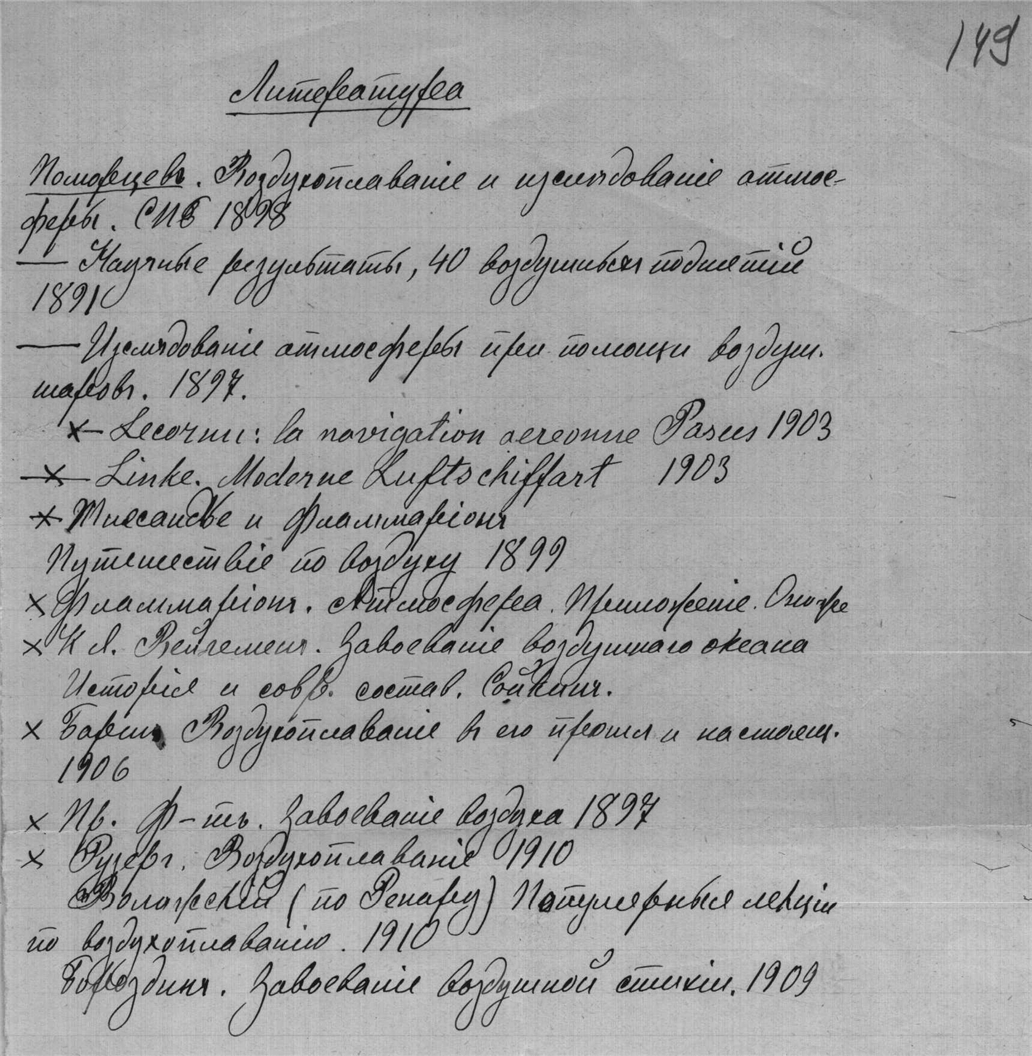 149
Литература
Поморцевъ. Воздухоплаваніе и изслѣдованіе атмос-
феры. СПБ 1898
— Научные результаты, 40 воздушныхъ поднятій
1891
— Изслѣдованіе атмосферы при помощи воздуш.
шаровъ. 1897.
×— Lecornu: la navigation aereonne Pareis 1903
—×— Linke. Moderne Luftschiffart 1903
× Тиссандье и Фламмаріонъ
Путешествіе по воздуху 1899
× Фламмаріонъ. Атмосфера. Приложеніе.
× К Л. Вейгелинъ. Завоеваніе воздушнаго океана
Исторія и совр. состав. Сойкинъ.
× Воздухоплаваніе в его прошл и настоящ.
1906
× Пр. Ф-тъ. Завоеваніе воздуха 1897
× Рузевъ. Воздухоплаваніе 1910
Воложскій (по Ренару) Популярныя лекціи
по воздухоплаванію. 1910
Бороздинъ. Завоеваніе воздушной стихіи. 1909